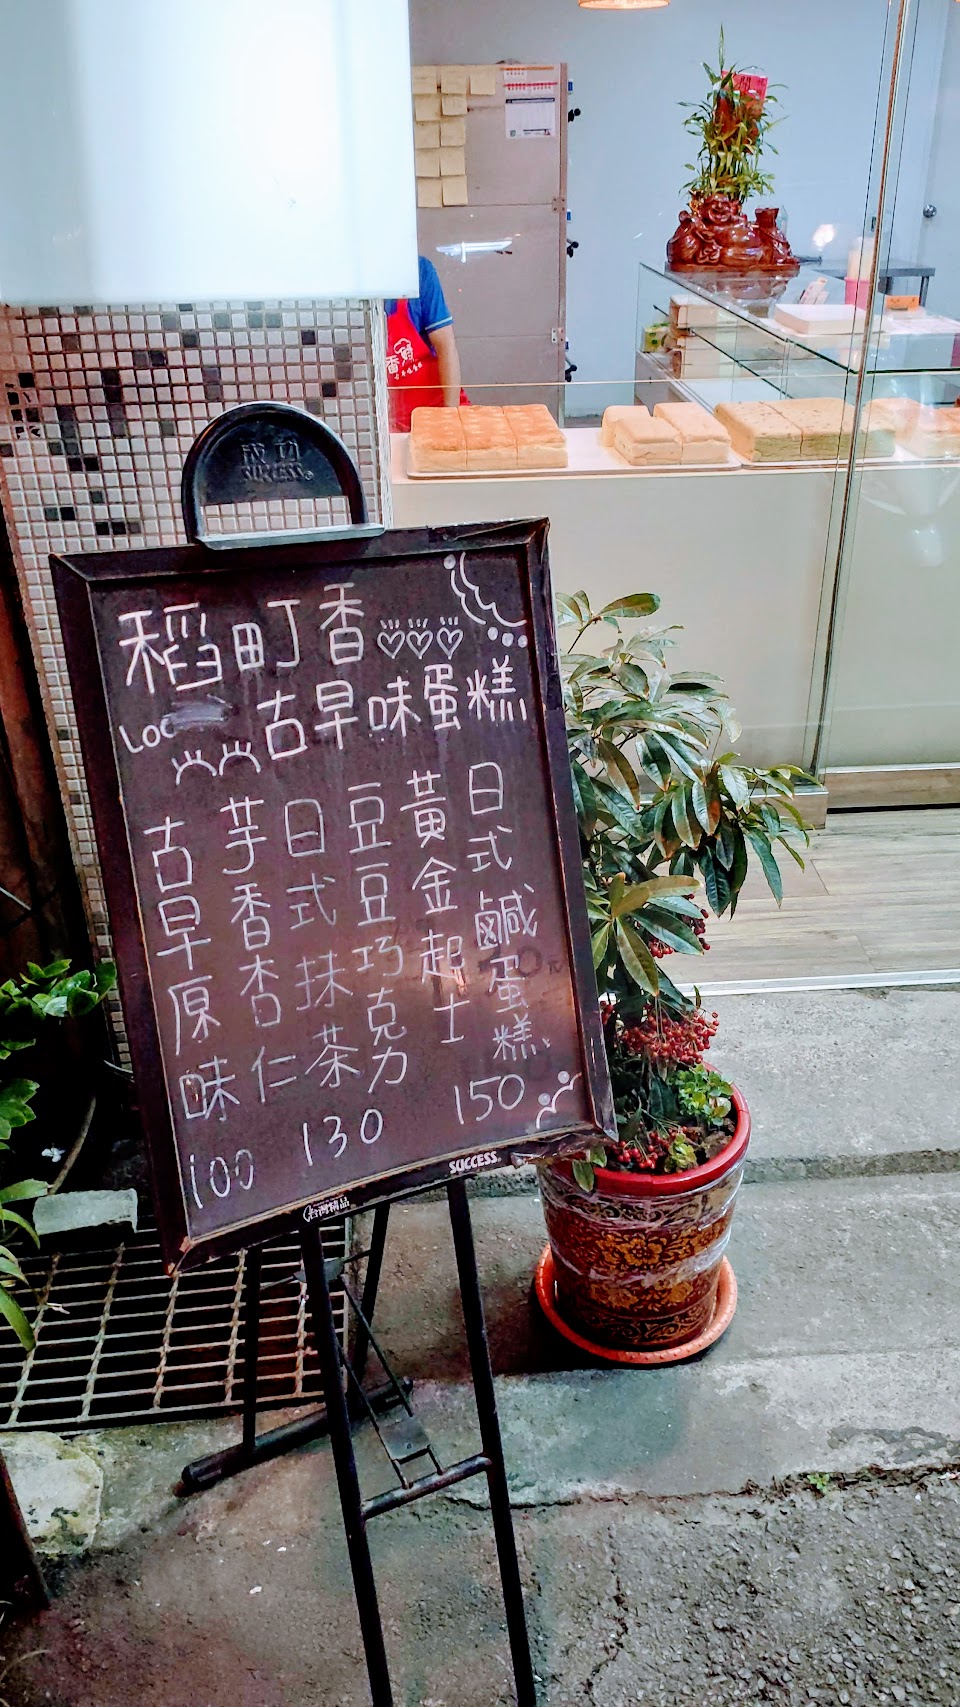 成功
SUCCESS®
稻町香
Loc
古早味蛋糕
古早原味
芋香杏仁
日式抹茶
豆豆巧克力
黃金起士
日式鹹蛋糕
100
130
150
SUCCESS®
台灣精品
香